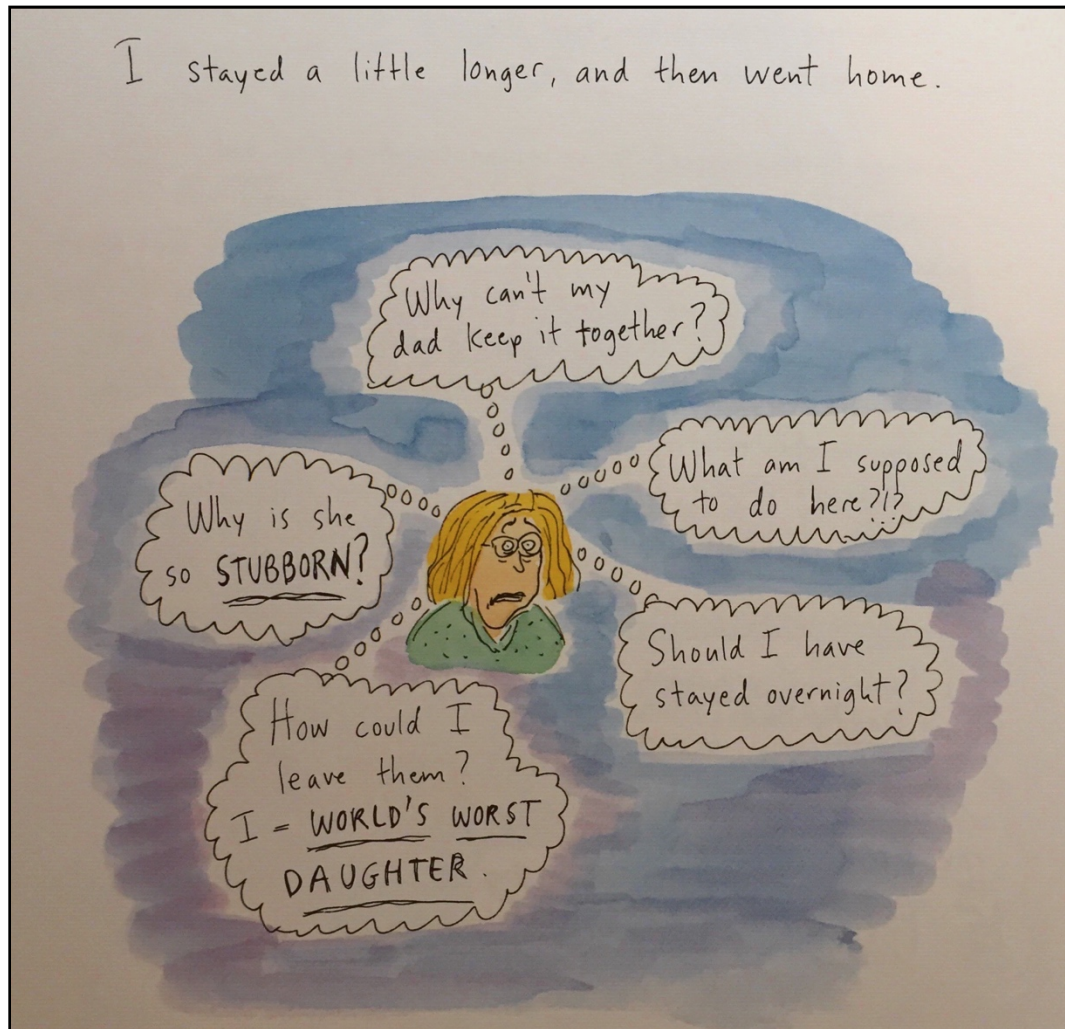 I stayed a little longer, and then went home.
Why can't my
dad keep it together?
What am I supposed
to do here?!?
Why is she
so STUBBORN?
Should I have
stayed overnight?
How could I
leave them?
I = WORLD'S WORST
DAUGHTER.